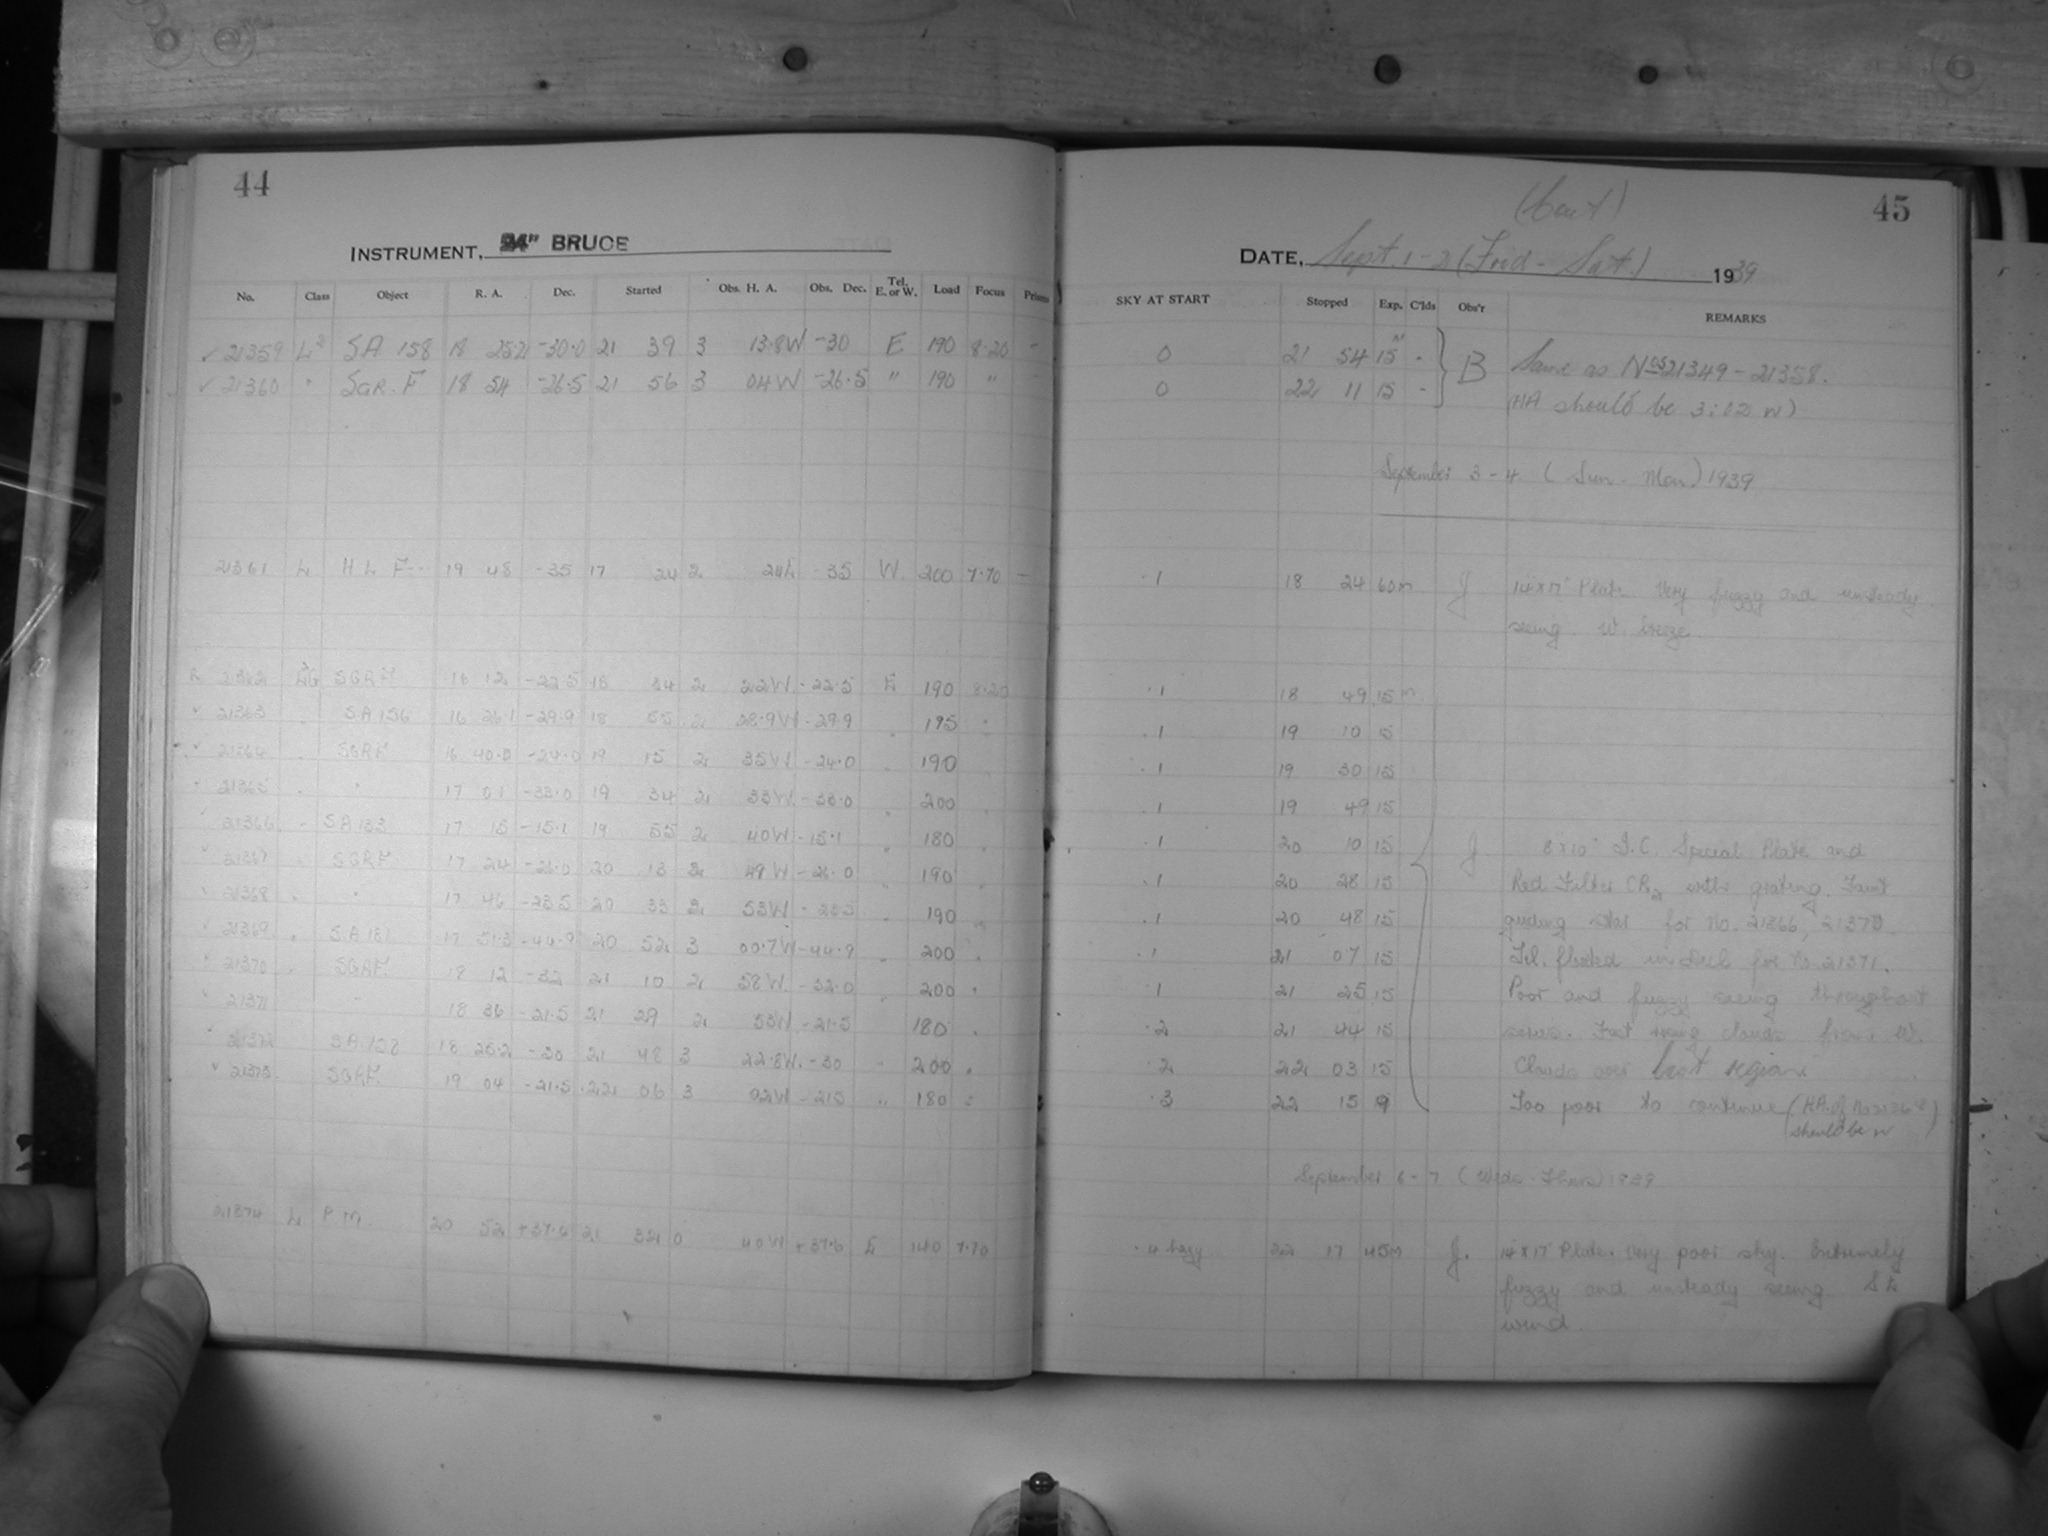 44
INSTRUMENT, 24" BRUCE
No. Class Object R. A. Dec. Started Obs. H. A. Obs. Dec. Tel. E. or W. Load Focus Prisms
21359 SA 158 18 25.2 -30.0 21 39 3 13.8W -30 E 190 8.20 -
21360 " SGR. F 18 54 -26.5 21 56 3 04W -26.5 " 190 "
21361 L H L F 19 48 -35 17 24 2 -35 W. 200 7.70 -
SGRF 16 12 -22.5 18 34 2 22W -22.5 E 190 8.20
21363 SA 156 16 26.1 -29.9 18 55 2 28.9W -29.9 195
21364 SGRF 16 40.0 -24.0 19 15 2 35W -24.0 190
21365 " 17 01 -33.0 19 34 2 33W -33.0 200
21366 SA 133 17 15 -15.1 19 55 2 40W -15.1 180
21367 SGRF 17 24 -26.0 20 13 2 49W -26.0 190
21368 " 17 46 -23.5 20 33 2 53W 190
21369 SA 181 17 51.3 -44.9 20 52 3 00.7W -44.9 200
21370 SGRF. 18 12 -32 21 10 2 58W. -32.0 200
21371 18 36 -21.5 21 29 2 53W -21.5 180
21372 SA 158 18 25.2 -30 21 48 3 22.8W. -30 200
21373. SGRF. 19 04 -21.5 22 06 3 02W -21.5 " 180
21374 L P M. 20 52 +37.6 21 32 0 40W +37.6 E 140 7.70
45
(Cont)
DATE, Sept. 1-2 (Frid - Sat.) 1939
SKY AT START Stopped Exp. C'lds Obs'r REMARKS
0 21 54 15m - B Same as Nos 21349-21358.
0 22 11 15 - (HA should be 3:02 W)
September 3-4. (Sun - Mon) 1939
.1 18 24 60m J 14x17" Plate. Very fuzzy and unsteady
seeing. W. breeze.
.1 18 49 15m
.1 19 10 15
.1 19 30 15
.1 19 49 15
.1 20 10 15 J. 8x10" I.C. Special Plate and
.1 20 28 15 Red Filter CR2 with grating. Faint
.1 20 48 15 guiding star for No. 21366, 21370.
.1 21 07 15 Tel. for No. 21371.
.1 21 25 15 Poor and fuzzy seeing throughout
.2 21 44 15 series. Fast clouds from W.
.2 22 03 15 Clouds over last region
.3 22 15 9 Too poor to continue (HA of No 21368
should be W)
September 6-7 (Weds - Thurs) 1939
.4 hazy 22 17 45m J. 14x17" Plate. Very poor sky. Extremely
fuzzy and unsteady seeing. SE
wind.